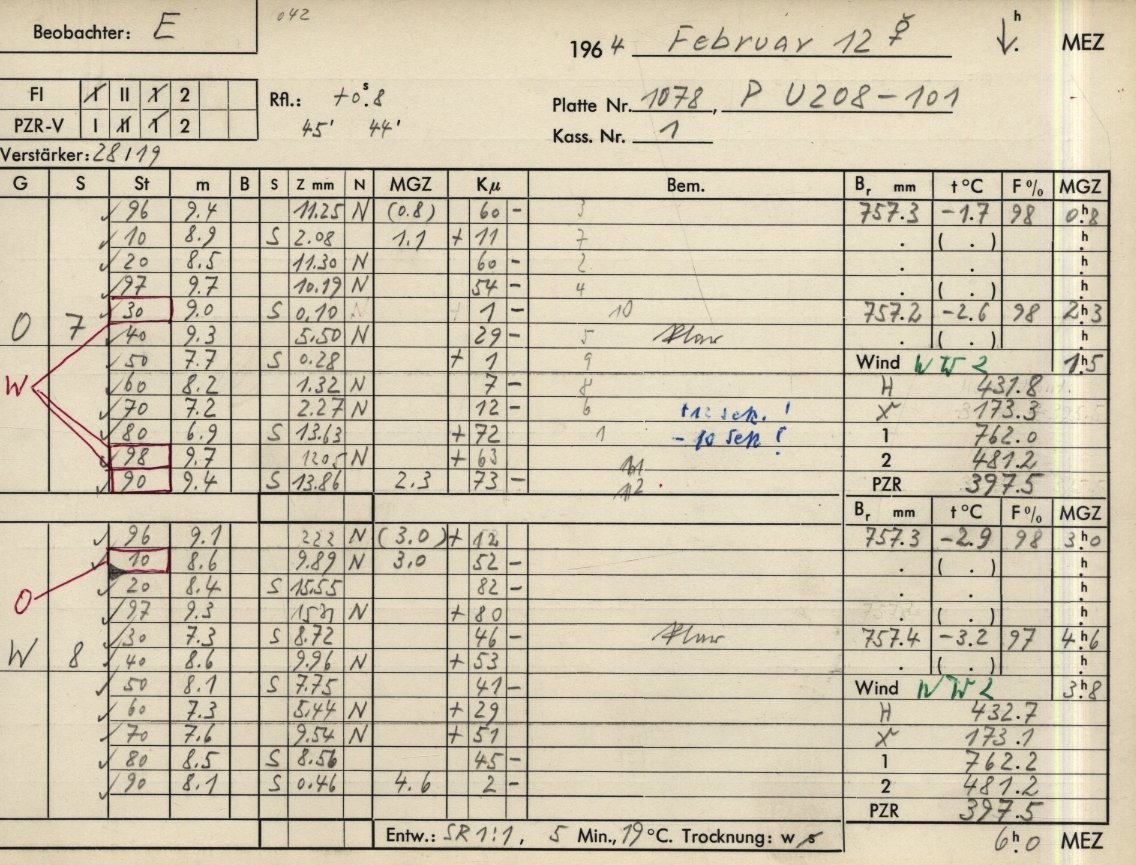 Beobachter: E 042
1964 Februar 12 h MEZ
FI I II 1 2 Rfl.: +0.s8
PZR-V I II 1 2 45' 44'
Platte Nr. 1078, P U208-101
Kass. Nr. 1
Verstärker: 28/19
G S St m B S Z mm N MGZ Kμ Bem. Br mm t °C F % MGZ
96 9.4 11.25 N (0.8) 60 - 3 757.3 -1.7 98 0.h8
10 8.9 S 2.08 1.1 + 11 7 . ( . ) h
20 8.5 11.30 N 60 - 2 . . h
97 9.7 10.19 N 54 - 4 . ( . ) h
30 9.0 S 0.10 1 - 10 757.2 -2.6 98 2.h3
O 7 40 9.3 5.50 N 29 - 5 klar . ( . ) h
50 7.7 S 0.28 + 1 9 Wind W 2 1.h5
W 60 8.2 1.32 N 7 - 8 H 431.8
70 7.2 2.27 N 12 - 6 +12 sek. ! X 173.3
80 6.9 S 13.63 + 72 1 - 10 Sek ! 1 762.0
98 9.7 12.05 N + 63 11 2 481.2
90 9.4 S 13.86 2.3 73 - 12 PZR 397.5
Br mm t °C F % MGZ
96 9.1 2.22 N (3.0) + 12 757.3 -2.9 98 3.h0
10 8.6 9.89 N 3.0 52 - . ( . ) h
20 8.4 S 15.55 82 - . . h
O 97 9.3 N + 80 . ( . ) h
30 7.3 S 8.72 46 - klar 757.4 -3.2 97 4.h6
W 8 40 8.6 9.96 N + 53 . ( . ) h
50 8.1 S 7.75 41 - Wind W 2 3.h8
60 7.3 5.44 N + 29 H 432.7
70 7.6 9.54 N + 51 X 173.1
80 8.5 S 8.56 45 - 1 762.2
90 8.1 S 0.46 4.6 2 - 2 481.2
PZR 397.5
Entw.: SR 1:1, 5 Min., 19 °C. Trocknung: w s 6.h0 MEZ